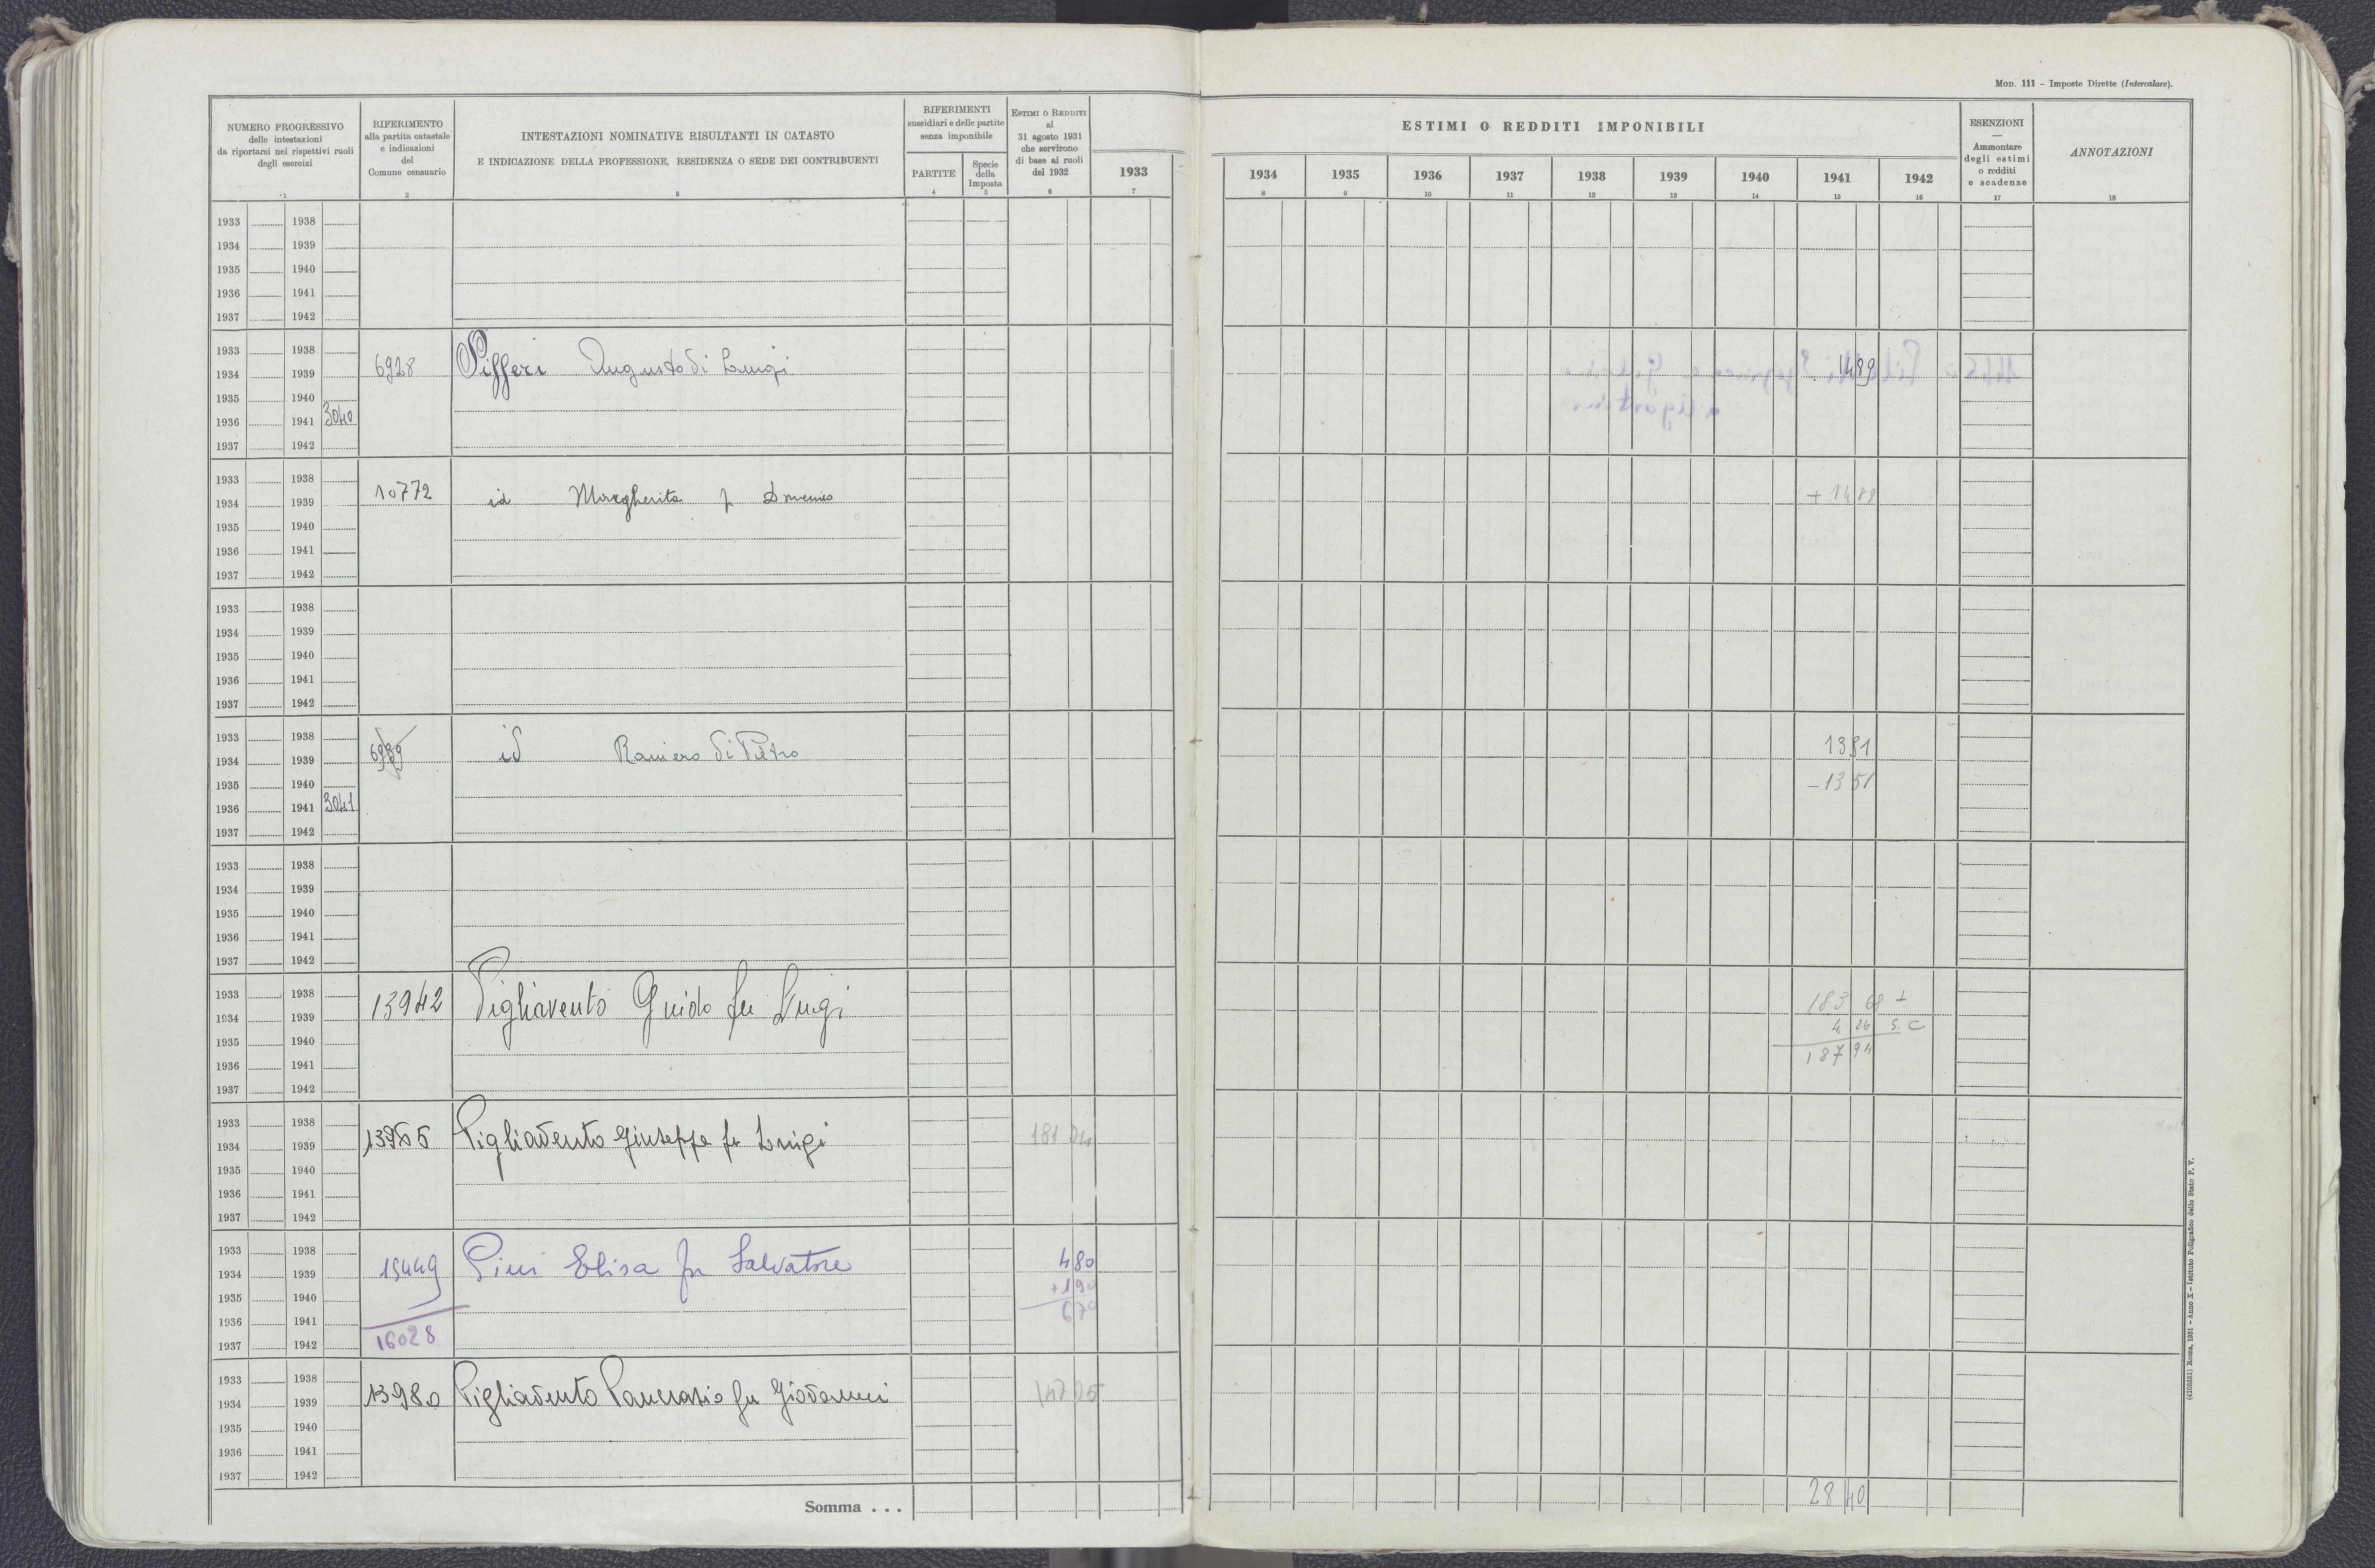 MOD. 111 – Imposte Dirette (Intercalare).
NUMERO PROGRESSIVO
delle intestazioni
da riportarsi nei rispettivi ruoli
degli esercizi
1
RIFERIMENTO
alla partita catastale
e indicazioni
del
Comune censuario
2
INTESTAZIONI NOMINATIVE RISULTANTI IN CATASTO
E INDICAZIONE DELLA PROFESSIONE, RESIDENZA O SEDE DEI CONTRIBUENTI
3
RIFERIMENTI
sussidiari e delle partite
senza imponibile
PARTITE
4
Specie
della
Imposta
5
ESTIMI O REDDITI
al
31 agosto 1931
che servirono
di base ai ruoli
del 1932
6
1933
7
ESTIMI O REDDITI IMPONIBILI
1934 1935 1936 1937 1938 1939 1940 1941 1942
8 9 10 11 12 13 14 15 16
ESENZIONI
—
Ammontare
degli estimi
o redditi
e scadenze
17
ANNOTAZIONI
18
1933 1938
1934 1939
1935 1940
1936 1941
1937 1942
1933 1938
1934 1939 6928 Pifferi Augusto di Luigi 1489
1935 1940
1936 1941 3040
1937 1942
1933 1938
1934 1939 10772 id Margherita f Domenico + 1489
1935 1940
1936 1941
1937 1942
1933 1938
1934 1939
1935 1940
1936 1941
1937 1942
1933 1938
1934 1939 id Raniero di Pietro 1351
1935 1940 – 1351
1936 1941 3041
1937 1942
1933 1938
1934 1939
1935 1940
1936 1941
1937 1942
1933 1938
1934 1939 13942 Pigliavento Guido fu Luigi 183 68 +
1935 1940 4 26 S. C
1936 1941 187 94
1937 1942
1933 1938
1934 1939 Pigliavento Giuseppe fu Luigi
1935 1940
1936 1941
1937 1942
1933 1938
1934 1939 15449 Pini Elisa fu Salvatore 480
1935 1940 + 190
1936 1941 670
1937 1942 16028
1933 1938
1934 1939 13980 Pigliavento Pancrazio fu Giovanni
1935 1940
1936 1941
1937 1942
Somma . . . 28 40
(4103531) Roma, 1931 – Anno X – Istituto Poligrafico dello Stato P. V.